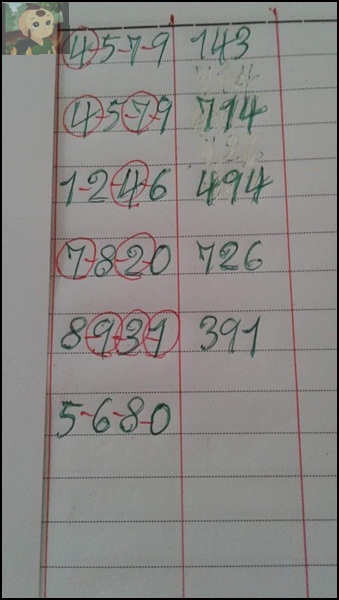 4-5-7-9 143
4-5-7-9 794
1-2-4-6 494
7-8-2-0 726
8-9-3-1 391
5-6-8-0